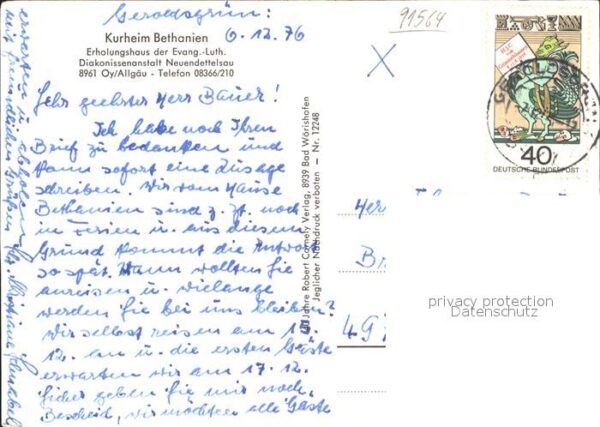 Geroldsgrün:
6.12.76
91564
Kurheim Bethanien
Erholungshaus der Evang.-Luth.
Diakonissenanstalt Neuendettelsau
8961 Oy/Allgäu - Telefon 08366/210
Sehr geehrter Herr Bauer!
Ich habe noch Ihren
Brief zu bedanken und
kann sofort eine Zusage
schreiben. Wir vom Hause
Bethanien sind z. Zt. noch
in Ferien u. aus diesem
Grund kommt die Antwort
so spät. Wann wollten Sie
anreisen u. wielange
werden Sie bei uns bleiben?
Wir selbst reisen am
12. an u. die ersten Gäste
erwarten wir am 17.12.
Sicher geben Sie mir noch
Bescheid, wir möchten alle Gäste
erwarten u. abholen
mit freundlichen Grüßen
Jahre Robert Cornely Verlag, 8939 Bad Wörishofen
Jeglicher Nachdruck verboten — Nr. 12248
40
DEUTSCHE BUNDESPOST
Her
B
497
privacy protection
Datenschutz